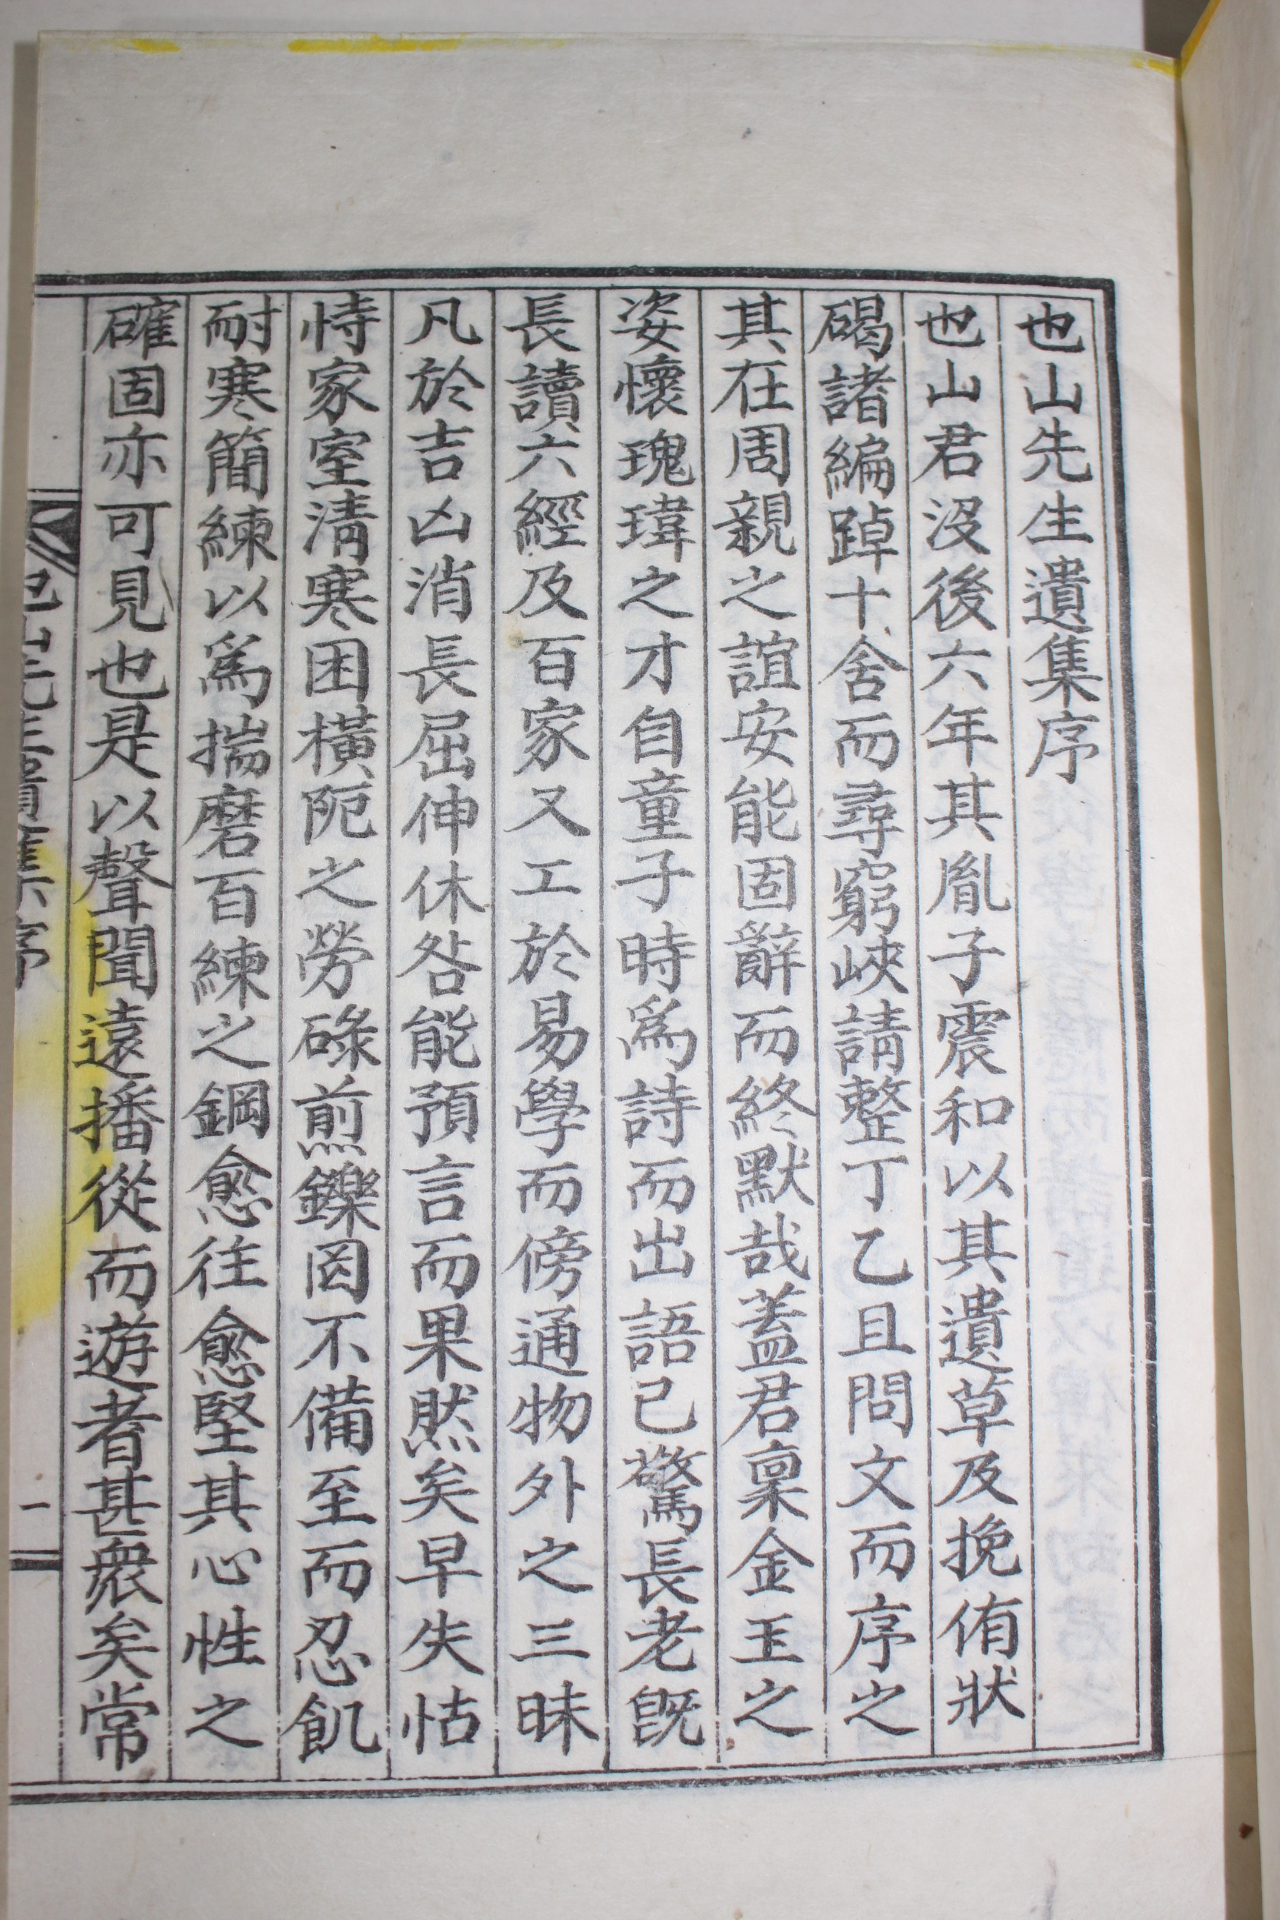 也山先生遺集序
也山君沒後六年其胤子震和以其遺草及挽侑狀
碣諸編踔十舍而尋窮峽請整丁乙且問文而序之
其在周親之誼安能固辭而終默哉蓋君稟金玉之
姿懷瑰瑋之才自童子時爲詩而出語已驚長老旣
長讀六經及百家又工於易學而傍通物外之三昧
凡於吉凶消長屈伸休咎能預言而果然矣早失怙
恃家室淸寒困橫阨之勞碌煎鑠罔不備至而忍飢
耐寒簡練以爲揣磨百練之鋼愈往愈堅其心性之
確固亦可見也是以聲聞遠播從而遊者甚衆矣常
也山先生遺集序
一